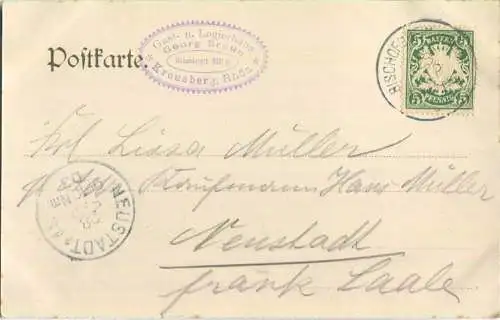 Postkarte.
Gast- u. Logierhaus
Georg Braun
Kreuzberg, Rhön
BISCHOF
BAYERN
5 5
PFENNIG
Frl. Lissa Müller
Kaufmann Hans Müller
Neustadt
fränk Saale
NEUSTADT a/S.
28
Nm
03